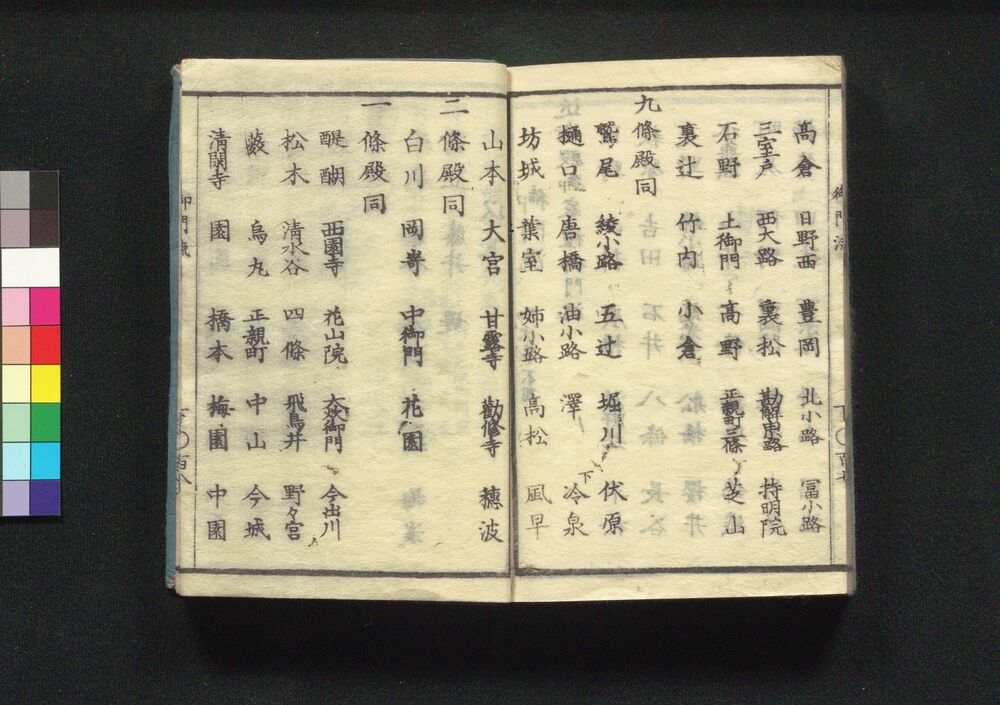 高倉 日野西 豊岡 北小路 冨小路
三室戸 西大路 裏松 勘解由路 持明院
石野 土御門 高野 正親町三條 芝山
裏辻 竹内 小倉
九條殿同
鷲尾 綾小路 五辻 堀川 伏原
樋口 唐橋 油小路 澤 下冷泉
坊城 葉室 姉小路 高松 風早
山本 大宮 甘露寺 勸修寺 穗波
二條殿同
白川 岡嵜 中御門 花園
一條殿同
醍醐 西園寺 花山院 大炊御門 今出川
松木 清水谷 四條 飛鳥井 野々宮
藪 烏丸 正親町 中山 今城
清閑寺 園 橋本 梅園 中園
御門流